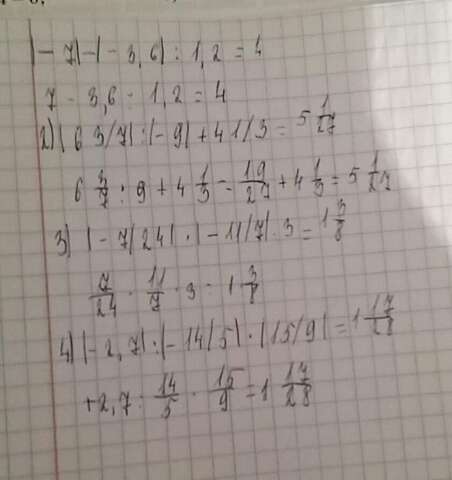 |-7|-|-3,6| : 1,2 = 4
7 - 3,6 : 1,2 = 4
2) |6 3/7| : |-9| + 4 1/3 = 5 1/27
6 3/7 : 9 + 4 1/3 = 19/27 + 4 1/3 = 5 1/27
3) |-7/24| · |-11/7| · 3 = 1 3/8
7/24 · 11/7 · 3 = 1 3/8
4) |-2,7| : |-14/5| · |15/9| = 1 17/28
+2,7 : 14/5 · 15/9 = 1 17/28